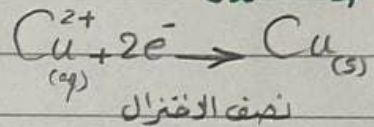 Cu²⁺(aq) + 2e⁻ → Cu(s)
نصف الاختزال